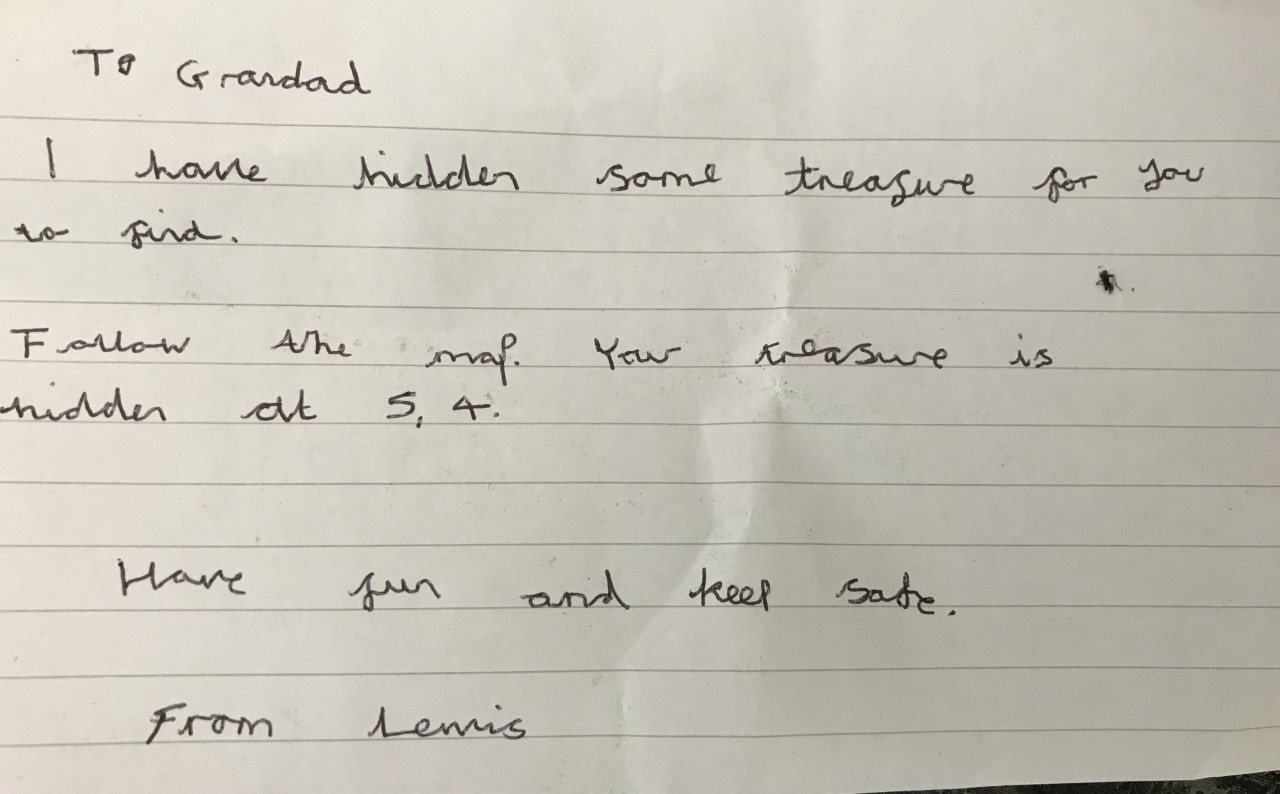 To Grandad
I have hidden some treasure for you
to find.
Follow the map. Your treasure is
hidden at 5, 4.
Have fun and keep safe.
From Lewis